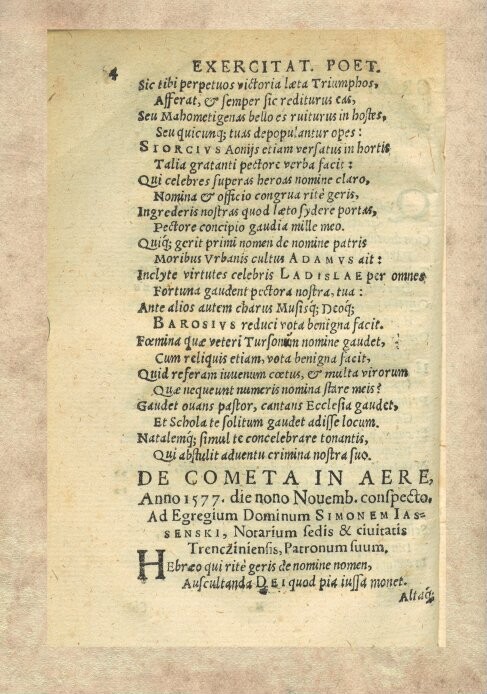 4
EXERCITAT. POET.
Sic tibi perpetuos victoria læta Triumphos,
Afferat, & semper sic rediturus eas,
Seu Mahometigenas bello es ruiturus in hostes,
Seu quicunq; tuas depopulantur opes:
STORCIVS Aonijs etiam versatus in hortis
Talia gratanti pectore verba facit:
Qui celebres superas heroas nomine claro,
Nomina & officio congrua ritè geris,
Ingrederis nostras quod læto sydere portas,
Pectore concipio gaudia mille meo.
Quiq; gerit primi nomen de nomine patris
Moribus Vrbanis cultus ADAMVS ait:
Inclyte virtutes celebris LADISLAE per omnes
Fortuna gaudent pectora nostra, tua:
Ante alios autem charus Musisq; Deoq;
BAROSIVS reduci vota benigna facit.
Fœmina quæ veteri Tursonum nomine gaudet,
Cum reliquis etiam, vota benigna facit,
Quid referam iuuenum cœtus, & multa virorum
Quæ nequeunt numeris nomina stare meis?
Gaudet ouans pastor, cantans Ecclesia gaudet,
Et Schola te solitum gaudet adisse locum.
Natalemq; simul te concelebrare tonantis,
Qui abstulit aduentu crimina nostra suo.
DE COMETA IN AERE,
Anno 1577. die nono Nouemb. conspecto,
Ad Egregium Dominum SIMONEM IAS-
SENSKI, Notarium sedis & ciuitatis
Trencžiniensis, Patronum suum.
Hebræo qui ritè geris de nomine nomen,
Auscultanda DEI quod pia iussa monet.
Altaq;